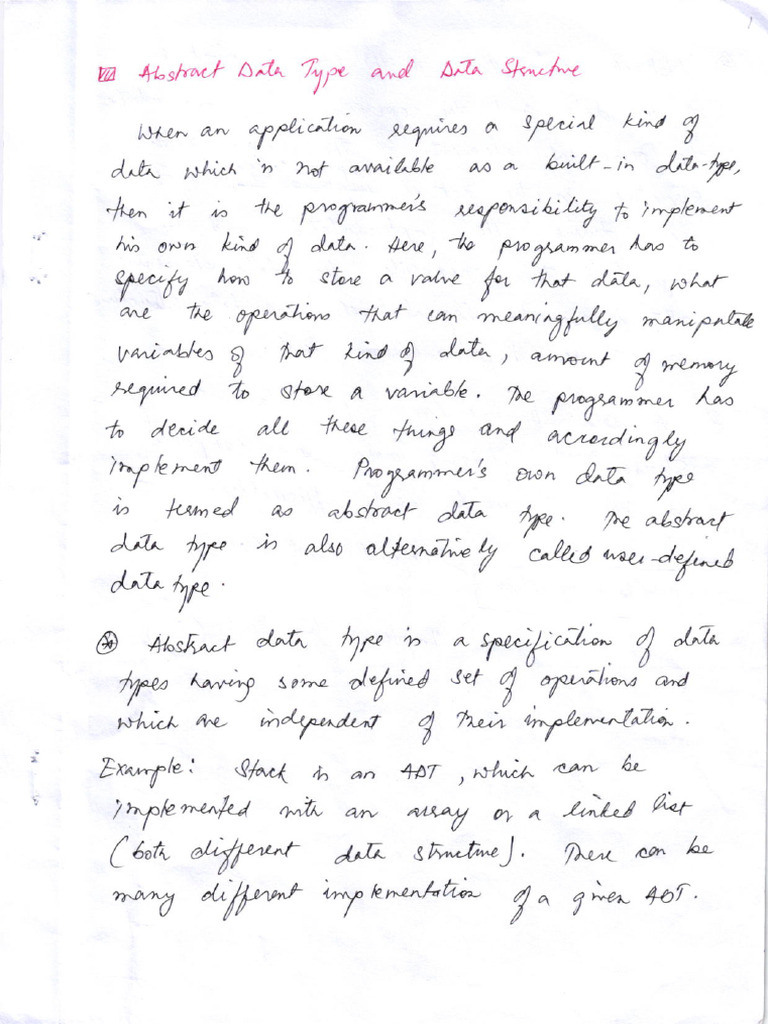 VII Abstract Data Type and Data Structure
When an application requires a special kind of
data which is not available as a built-in data-type,
then it is the programmer's responsibility to implement
his own kind of data. Here, the programmer has to
specify how to store a value for that data, what
are the operations that can meaningfully manipulate
variables of that kind of data, amount of memory
required to store a variable. The programmer has
to decide all these things and accordingly
implement them. Programmer's own data type
is termed as abstract data type. The abstract
data type is also alternatively called user-defined
data type.
Abstract data type is a specification of data
types having some defined set of operations and
which are independent of their implementation.
Example: Stack is an ADT, which can be
implemented with an array or a linked list
(both different data structure). There can be
many different implementation of a given ADT.